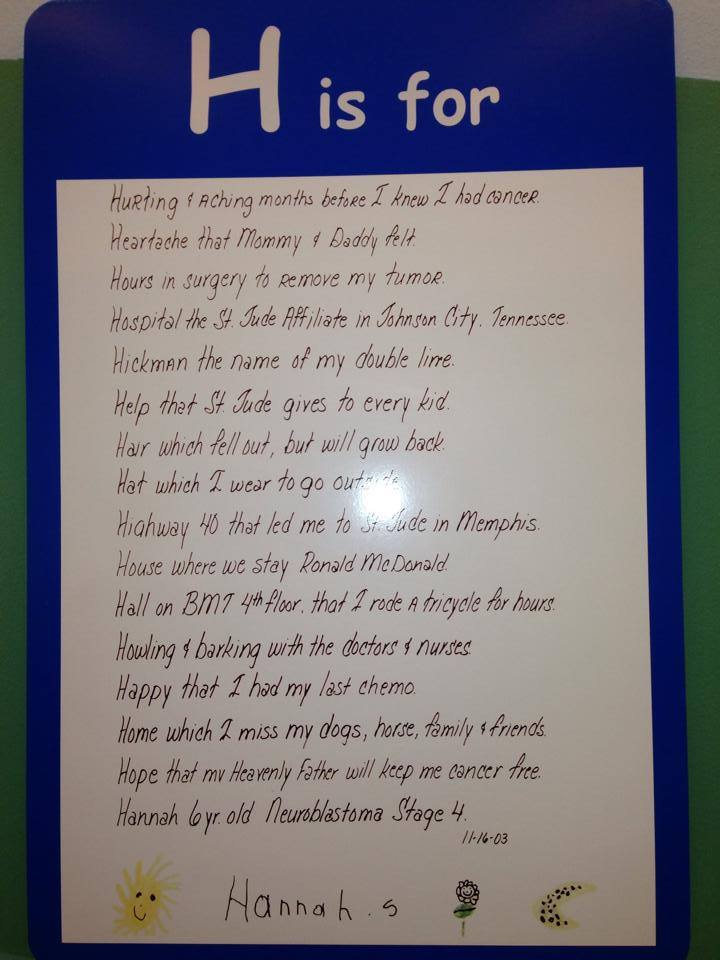 H is for
Hurting & Aching months before I knew I had cancer.
Heartache that Mommy & Daddy felt.
Hours in surgery to Remove my tumor.
Hospital the St. Jude Affiliate in Johnson City. Tennessee.
Hickman the name of my double line.
Help that St. Jude gives to every kid.
Hair which fell out, but will grow back.
Hat which I wear to go outside.
Highway 40 that led me to St. Jude in Memphis.
House where we stay Ronald McDonald.
Hall on BMT 4th floor. that I rode A tricycle for hours.
Howling & barking with the doctors & nurses.
Happy that I had my last chemo.
Home which I miss my dogs, horse, family & friends.
Hope that my Heavenly Father will keep me cancer free.
Hannah 6 yr. old Neuroblastoma Stage 4.
11-16-03
Hannah . s